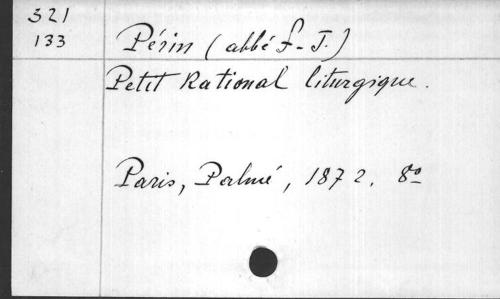 321
133
Périn (abbé f-J.)
Petit Rational liturgique.
Paris, Palmé, 1872. 8º